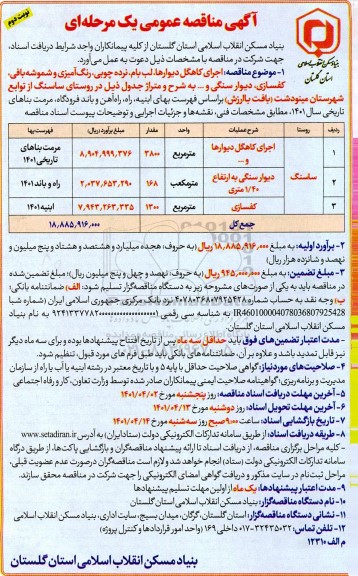 نوبت دوم
آگهی مناقصه عمومی یک مرحله‌ای
بنیاد مسکن انقلاب اسلامی
استان گلستان
بنیاد مسکن انقلاب اسلامی استان گلستان از کلیه پیمانکاران واجد شرایط دریافت اسناد،
جهت شرکت در مناقصه با مشخصات ذیل دعوت به عمل می‌آورد.
۱- موضوع مناقصه: اجرای کاهگل دیوارها، لب بام، نرده چوبی، رنگ‌آمیزی و شموشه‌بافی،
کفسازی، دیوار سنگی و ... به شرح و متراژ جدول ذیل در روستای ساسنگ از توابع
شهرستان مینودشت (بافت باارزش) براساس فهرست بهای ابنیه، راه، راه‌آهن و باند فرودگاه، مرمت بناهای
تاریخی سال ۱۴۰۱، مطابق مشخصات فنی، نقشه‌ها و جزئیات اجرایی و توضیحات پیوست اسناد مناقصه
ردیف روستا شرح عملیات واحد مقدار مبلغ برآورد (ریال) فهرست بها
۱ ساسنگ اجرای کاهگل دیوارها و ... مترمربع ۳۸۰۰ ۸,۹۰۴,۹۹۹,۳۷۶ مرمت بناهای تاریخی ۱۴۰۱
۲ دیوار سنگی به ارتفاع ۱/۴۰ متری مترمکعب ۱۶۸ ۲,۰۳۷,۶۵۳,۲۹۰ راه و باند ۱۴۰۱
۳ کفسازی مترمربع ۱۳۰۰ ۷,۹۴۳,۲۶۳,۳۳۵ ابنیه ۱۴۰۱
جمع کل ۱۸,۸۸۵,۹۱۶,۰۰۰
۲- برآورد اولیه: به مبلغ ۱۸,۸۸۵,۹۱۶,۰۰۰ ریال (به حروف: هجده میلیارد و هشتصد و هشتاد و پنج میلیون و
نهصد و شانزده هزار ریال)
۳- مبلغ تضمین: به مبلغ ۹۴۵,۰۰۰,۰۰۰ ریال (به حروف: نهصد و چهل و پنج میلیون ریال)؛ مبلغ تضمین شده
در مناقصه باید به یکی از صورت‌های مشروحه زیر به دستگاه مناقصه‌گزار تسلیم شود: الف) ضمانتنامه بانکی؛
ب) وجه نقد به حساب شماره ۴۰۷۸۰۳۶۸۰۷۹۲۵۴۲۸ نزد بانک مرکزی جمهوری اسلامی ایران (شماره شبا
IR460100004078036807925428 به شناسه سی رقمی به نام بنیاد
مسکن انقلاب اسلامی استان گلستان.
- مدت اعتبار تضمین‌های فوق باید حداقل سه ماه پس از تاریخ افتتاح پیشنهادها بوده و برای سه ماه دیگر
نیز قابل تمدید باشد و علاوه بر آن، ضمانتنامه‌های بانکی باید طبق فرم‌های مورد قبول، تنظیم شود.
۴- صلاحیت‌های موردنیاز: گواهی صلاحیت حداقل با پایه ۵ و با تاریخ معتبر در رشته ابنیه یا آب یا راه از سازمان
مدیریت و برنامه‌ریزی؛ گواهینامه صلاحیت ایمنی پیمانکاران صادر شده توسط وزارت تعاون، کار و رفاه اجتماعی
۵- آخرین مهلت دریافت اسناد مناقصه: روز پنجشنبه مورخ ۱۴۰۱/۰۴/۰۲
۶- آخرین مهلت تحویل اسناد: روز دوشنبه مورخ ۱۴۰۱/۰۴/۱۳
۷- تاریخ بازگشایی اسناد: ساعت ۹:۰۰ صبح روز سه‌شنبه مورخ ۱۴۰۱/۰۴/۱۴
۸- طریقه دریافت اسناد: از طریق سامانه تدارکات الکترونیکی دولت (ستاد ایران) به آدرس www.setadiran.ir
- کلیه مراحل برگزاری مناقصه، از دریافت اسناد تا ارائه پیشنهاد مناقصه‌گران و بازگشایی پاکت‌ها، از طریق درگاه
سامانه تدارکات الکترونیکی دولت (ستاد) انجام خواهد شد و لازم است مناقصه‌گران درصورت عدم عضویت قبلی،
مراحل ثبت‌نام در سایت مذکور و دریافت گواهی امضای الکترونیکی را جهت شرکت در مناقصه محقق سازند.
۹- مدت اعتبار پیشنهادها: یک ماه از آخرین مهلت تسلیم پیشنهادها
۱۰- نام دستگاه مناقصه‌گزار: بنیاد مسکن انقلاب اسلامی استان گلستان
۱۱- نشانی دستگاه مناقصه‌گزار: استان گلستان، گرگان، میدان بسیج، سایت اداری، بنیاد مسکن انقلاب اسلامی
۱۲- تلفن تماس: ۳۲۴۳۵۰۳۲-۰۱۷ داخلی ۱۶۹ (واحد امور قراردادها و کنترل پروژه)
م الف ۱۲۳۱۰
بنیاد مسکن انقلاب اسلامی استان گلستان